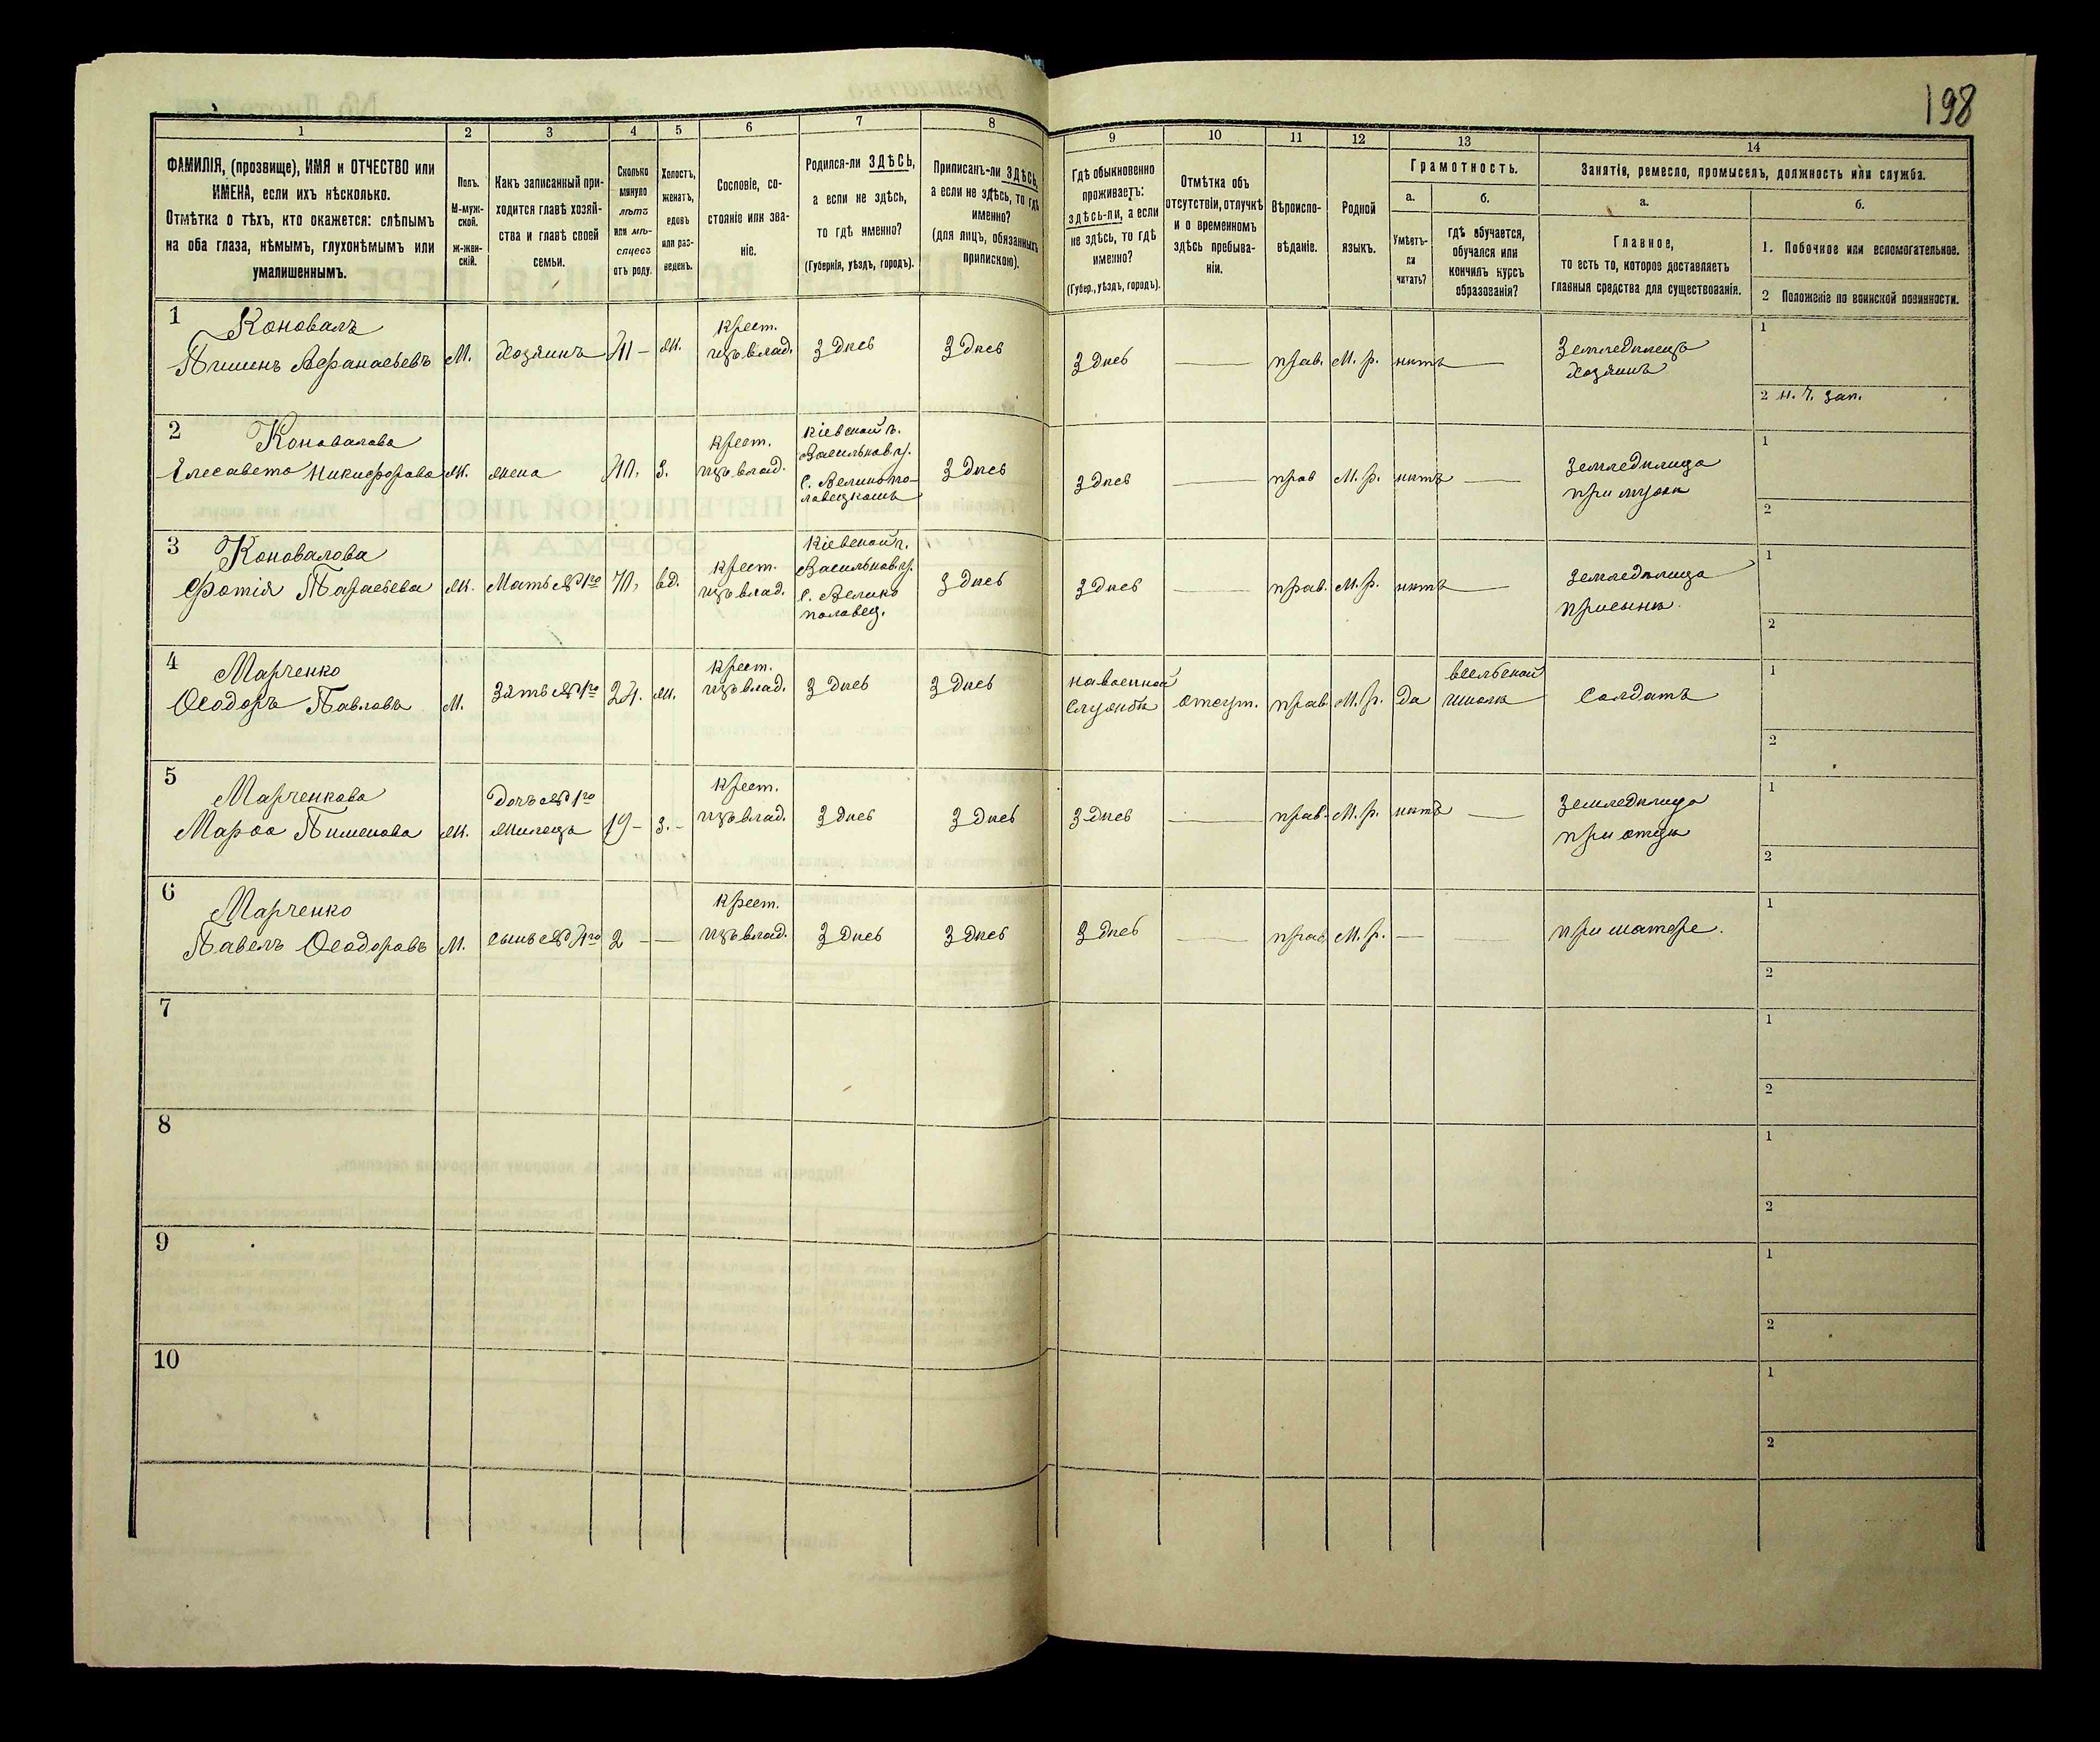 198
1 2 3 4 5 6 7 8 9 10 11 12 13 14
ФАМИЛІЯ, (прозвище), ИМЯ и ОТЧЕСТВО или
ИМЕНА, если ихъ нѣсколько.
Отмѣтка о тѣхъ, кто окажется: слѣпымъ
на оба глаза, нѣмымъ, глухонѣмымъ или
умалишеннымъ.
Полъ.
М-муж-
ской.
Ж-жен-
скій.
Какъ записанный при-
ходится главѣ хозяй-
ства и главѣ своей
семьи.
Сколько
минуло
лѣтъ
или мѣ-
сяцевъ
отъ роду.
Холостъ,
женатъ,
вдовъ
или раз-
веденъ.
Сословіе, со-
стояніе или зва-
ніе.
Родился-ли ЗДѢСЬ,
а если не здѣсь,
то гдѣ именно?
(Губернія, уѣздъ, городъ).
Приписанъ-ли ЗДѢСЬ,
а если не здѣсь, то гдѣ
именно?
(для лицъ, обязанныхъ
припискою).
Гдѣ обыкновенно
проживаетъ:
здѣсь-ли, а если
не здѣсь, то гдѣ
именно?
(Губер., уѣздъ, городъ).
Отмѣтка объ
отсутствіи, отлучкѣ
и о временномъ
здѣсь пребыва-
ніи.
Вѣроиспо-
вѣданіе.
Родной
языкъ.
Грамотность.
а.
Умѣетъ-
ли
читать?
б.
гдѣ обучается,
обучался или
кончилъ курсъ
образованія?
Занятіе, ремесло, промыселъ, должность или служба.
а.
Главное,
то есть то, которое доставляетъ
главныя средства для существованія.
б.
1. Побочное или вспомогательное.
2 Положеніе по воинской повинности.
1
Коновалъ
Пименъ Афанасьевъ
М.
Хозяинъ
41 –
ж.
Крест.
изъ влад.
Здѣсь
Здѣсь
Здѣсь
прав.
М. р.
нѣтъ
Земледѣлецъ
Хозяинъ
1
2 н. ч. зап.
2
Коновалова
Елесавета Никифорова
ж.
жена
40.
з.
Крест.
изъ влад.
Кіевской г.
Васильков. у.
с. Великопо-
ловецкомъ
Здѣсь
Здѣсь
прав
М. р.
нѣтъ
Земледѣлица
при мужѣ
1
2
3
Коновалова
Фотія Тарасьева
ж.
Мать № 1го
70,
вд.
Крест.
изъ влад.
Кіевской г.
Васильков. у.
с. Велико
половец.
Здѣсь
Здѣсь
прав.
М. р.
нѣтъ
Земледѣлица
при сынѣ
1
2
4
Марченко
Ѳеодоръ Павловъ
М.
Зять № 1го
24.
ж.
Крест.
изъ влад.
Здѣсь
Здѣсь
на военной
службѣ
отсут.
прав.
М. р.
да
в сельской
школѣ
Солдатъ
1
2
5
Марченкова
Марѳа Пименова
ж.
Дочь № 1го
жилецъ
19 –
з. –
Крест.
изъ влад.
Здѣсь
Здѣсь
Здѣсь
прав.
М. р.
нѣтъ
Земледѣлица
при отцѣ
1
2
6
Марченко
Павелъ Ѳеодоровъ
М.
Сынъ № 4го
2 –
–
Крест.
изъ влад.
Здѣсь
Здѣсь
Здѣсь
прав.
М. р.
–
при матере.
1
2
7
1
2
8
1
2
9
1
2
10
1
2